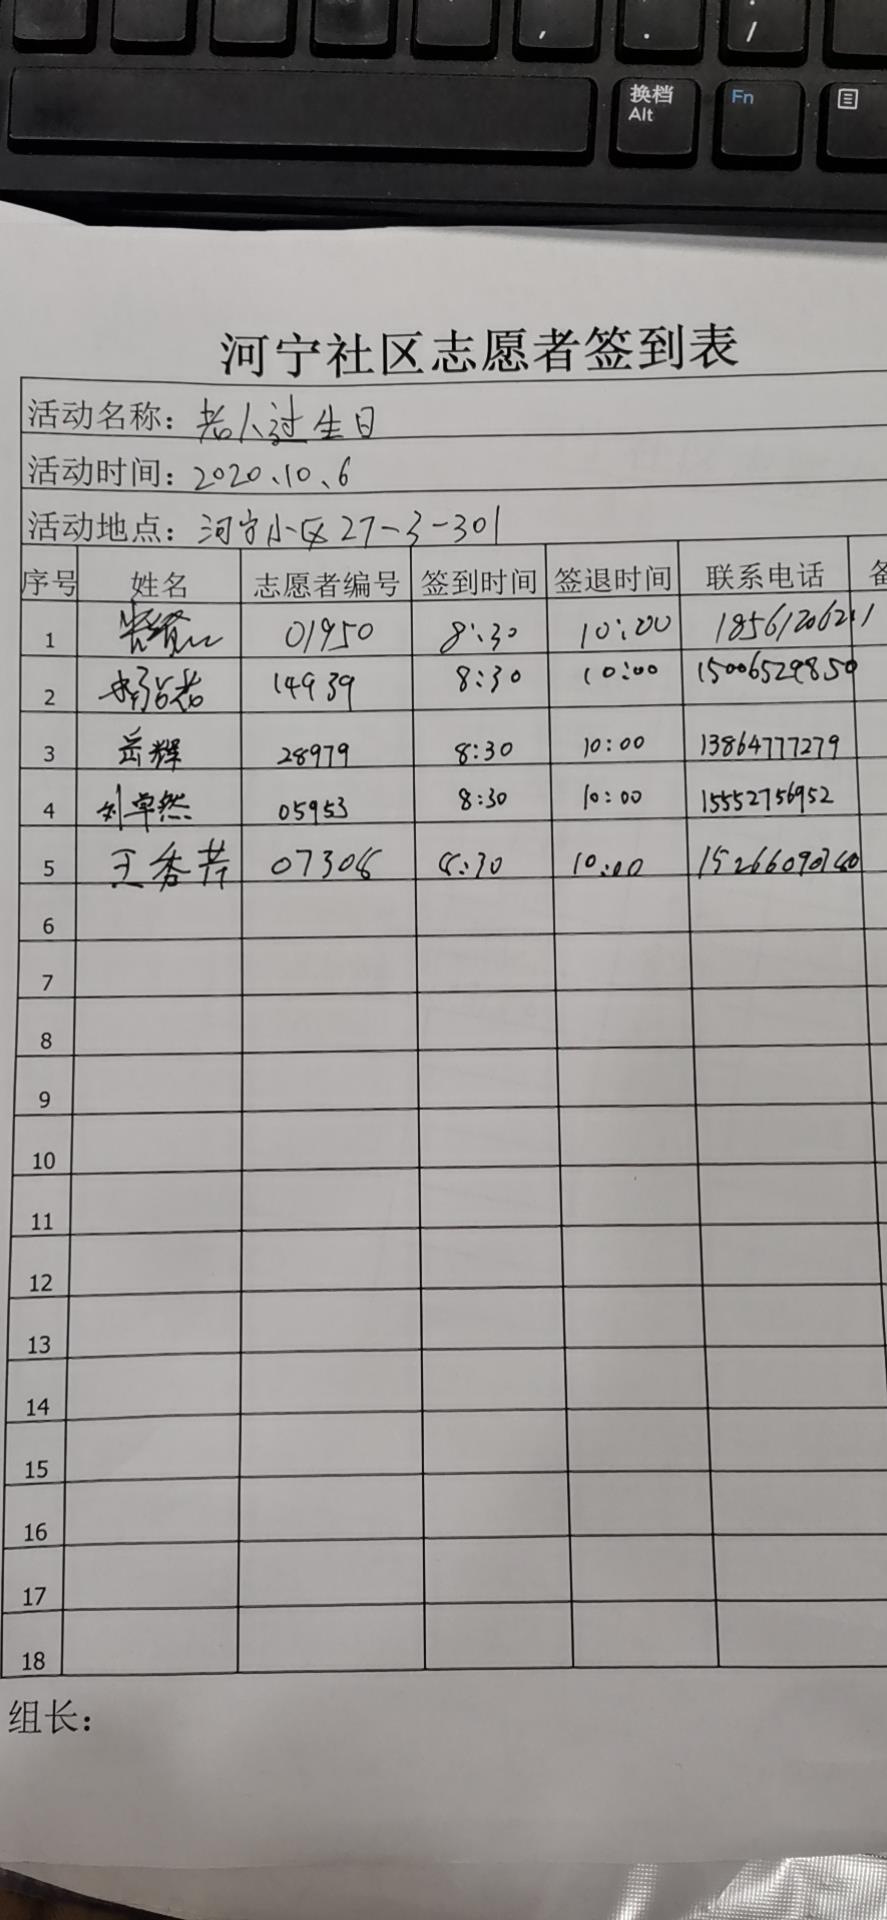 ,
.
/
换档
Alt
Fn
河宁社区志愿者签到表
活动名称：老人过生日
活动时间：2020.10.6
活动地点：河宁小区27-3-301
序号 姓名 志愿者编号 签到时间 签退时间 联系电话 备
1 01950 8:30 10:00
2 14939 8:30 10:00 15006529850
3 岳辉 28979 8:30 10:00 13864777279
4 刘卓然 05953 8:30 10:00 15552756952
5 王秀芳 07308 8:30 10:00
6
7
8
9
10
11
12
13
14
15
16
17
18
组长：